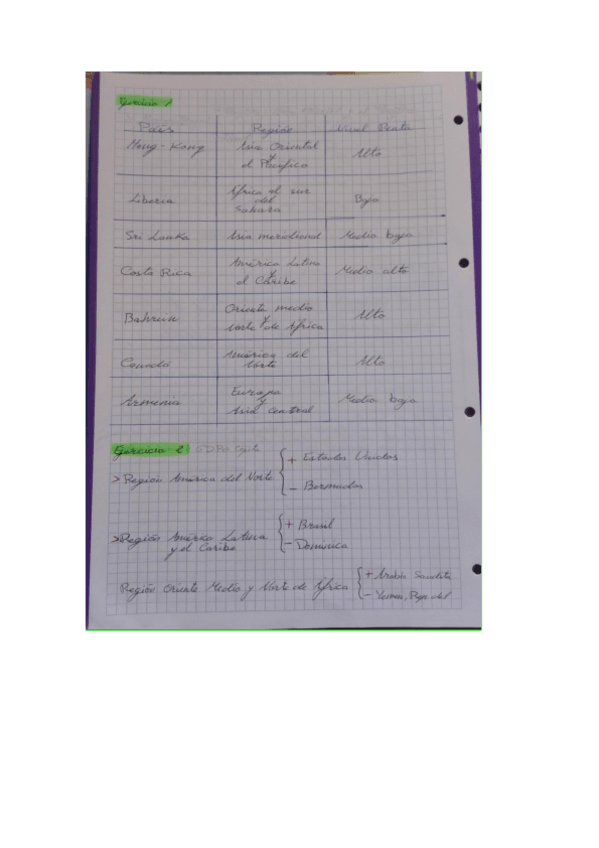 Ejercicio 1
País Región Nivel Renta
Hong-Kong Asia Oriental y el Pacífico Alto
Liberia África al sur del Sahara Bajo
Sri Lanka Asia meridional Medio bajo
Costa Rica América Latina y el Caribe Medio alto
Bahrein Oriente medio y Norte de África Alto
Canadá América del Norte Alto
Armenia Europa y Asia central Medio bajo
Ejercicio 2
> Región América del Norte { + Estados Unidos
- Bermudas
> Región América Latina y el Caribe { + Brasil
- Dominica
Región Oriente Medio y Norte de África { + Arabia Saudita
- Yemen, Rep. del